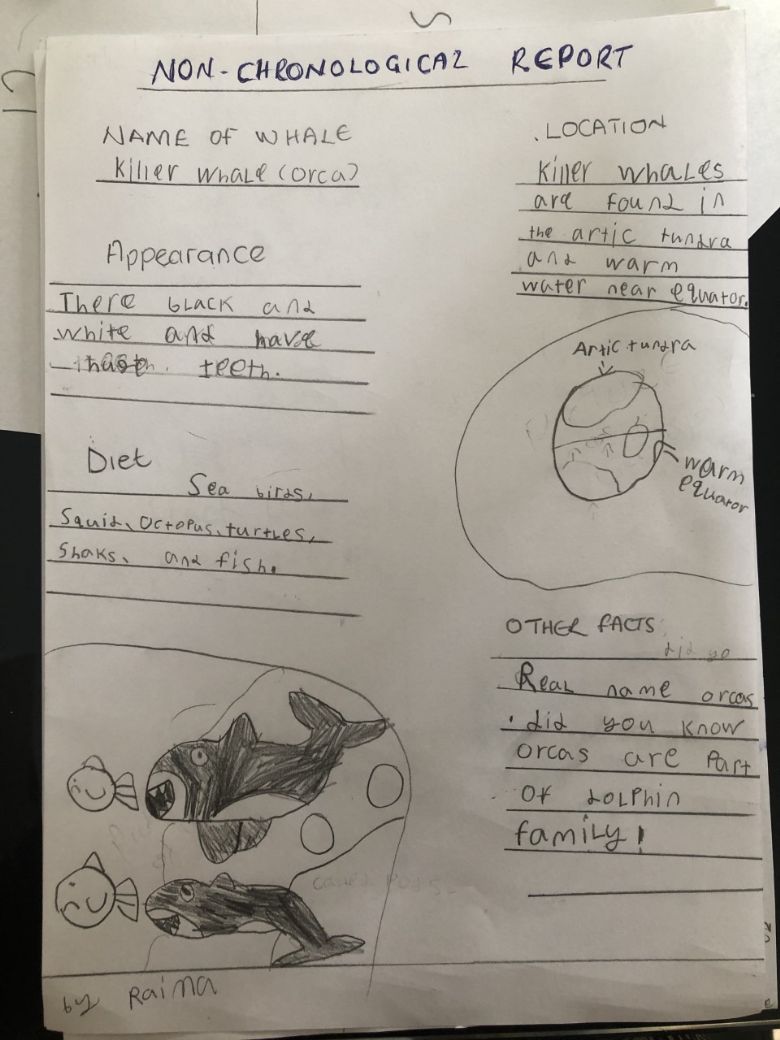 NON-CHRONOLOGICAL REPORT
NAME OF WHALE
Killer whale (orca)
Appearance
There black and
white and have
teeth.
Diet
Sea birds,
Squid, Octopus, turtles,
Shaks, and fish.
.LOCATION
Killer whales
are found in
the artic tundra
and warm
water near equator.
Artic tundra
warm
equator
OTHER FACTS
did yo
Real name orcas
. did you know
orcas are Part
of dolphin
family!
by Raima